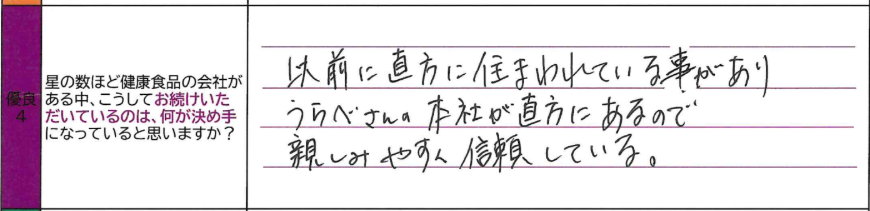 優良
4
星の数ほど健康食品の会社が
ある中、こうしてお続けいた
だいているのは、何が決め手
になっていると思いますか？
以前に直方に住まわれている事があり
うらべさんの本社が直方にあるので
親しみやすく信頼している。